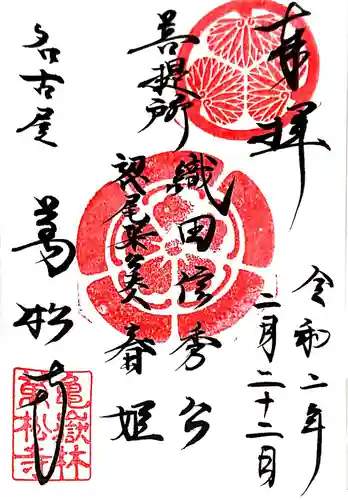 奉拝
令和二年
二月二十二日
菩提所
織田信秀公
春姫
名古屋
萬松寺
亀嶽林
萬松寺